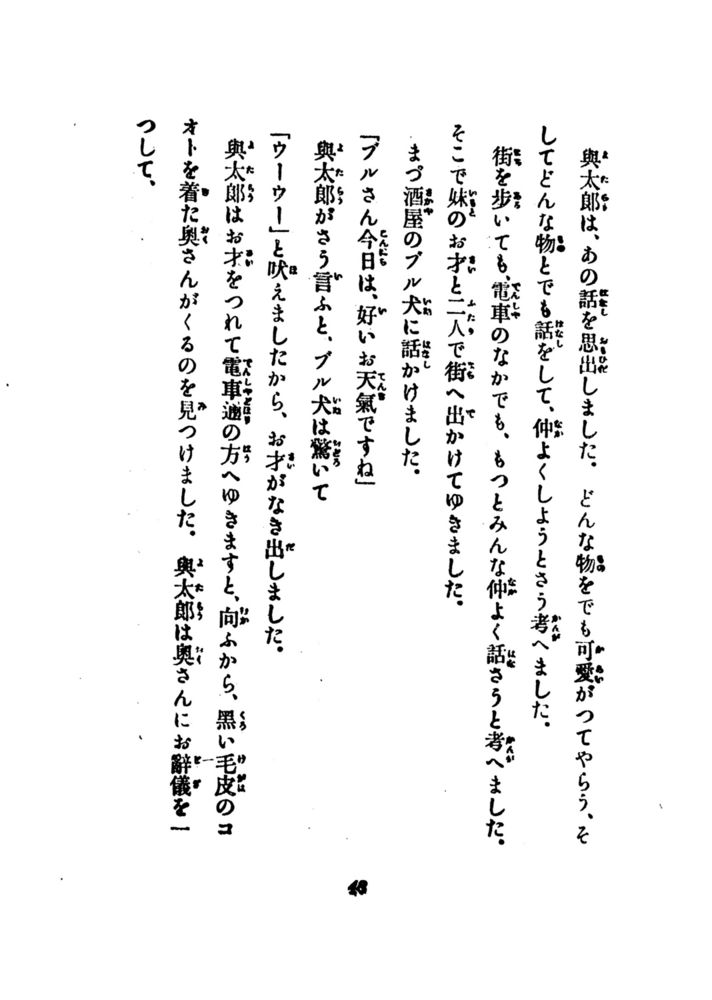 與太郎は、あの話を思出しました。どんな物をでも可愛がつてやらう、そ
してどんな物とでも話をして、仲よくしようとさう考へました。
街を歩いても、電車のなかでも、もつとみんな仲よく話さうと考へました。
そこで妹のお才と二人で街へ出かけてゆきました。
まづ酒屋のブル犬に話かけました。
「ブルさん今日は、好いお天氣ですね」
與太郎がさう言ふと、ブル犬は驚いて
「ウーウー」と吠えましたから、お才がなき出しました。
與太郎はお才をつれて電車通の方へゆきますと、向ふから、黑い毛皮のコ
オトを着た奧さんがくるのを見つけました。與太郎は奧さんにお辭儀を一
つして、
43